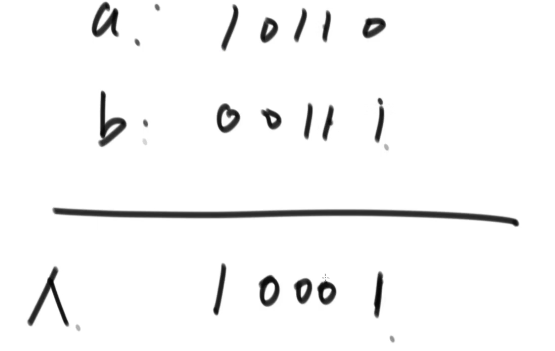 a: 10110
b: 00111
∧ 10001